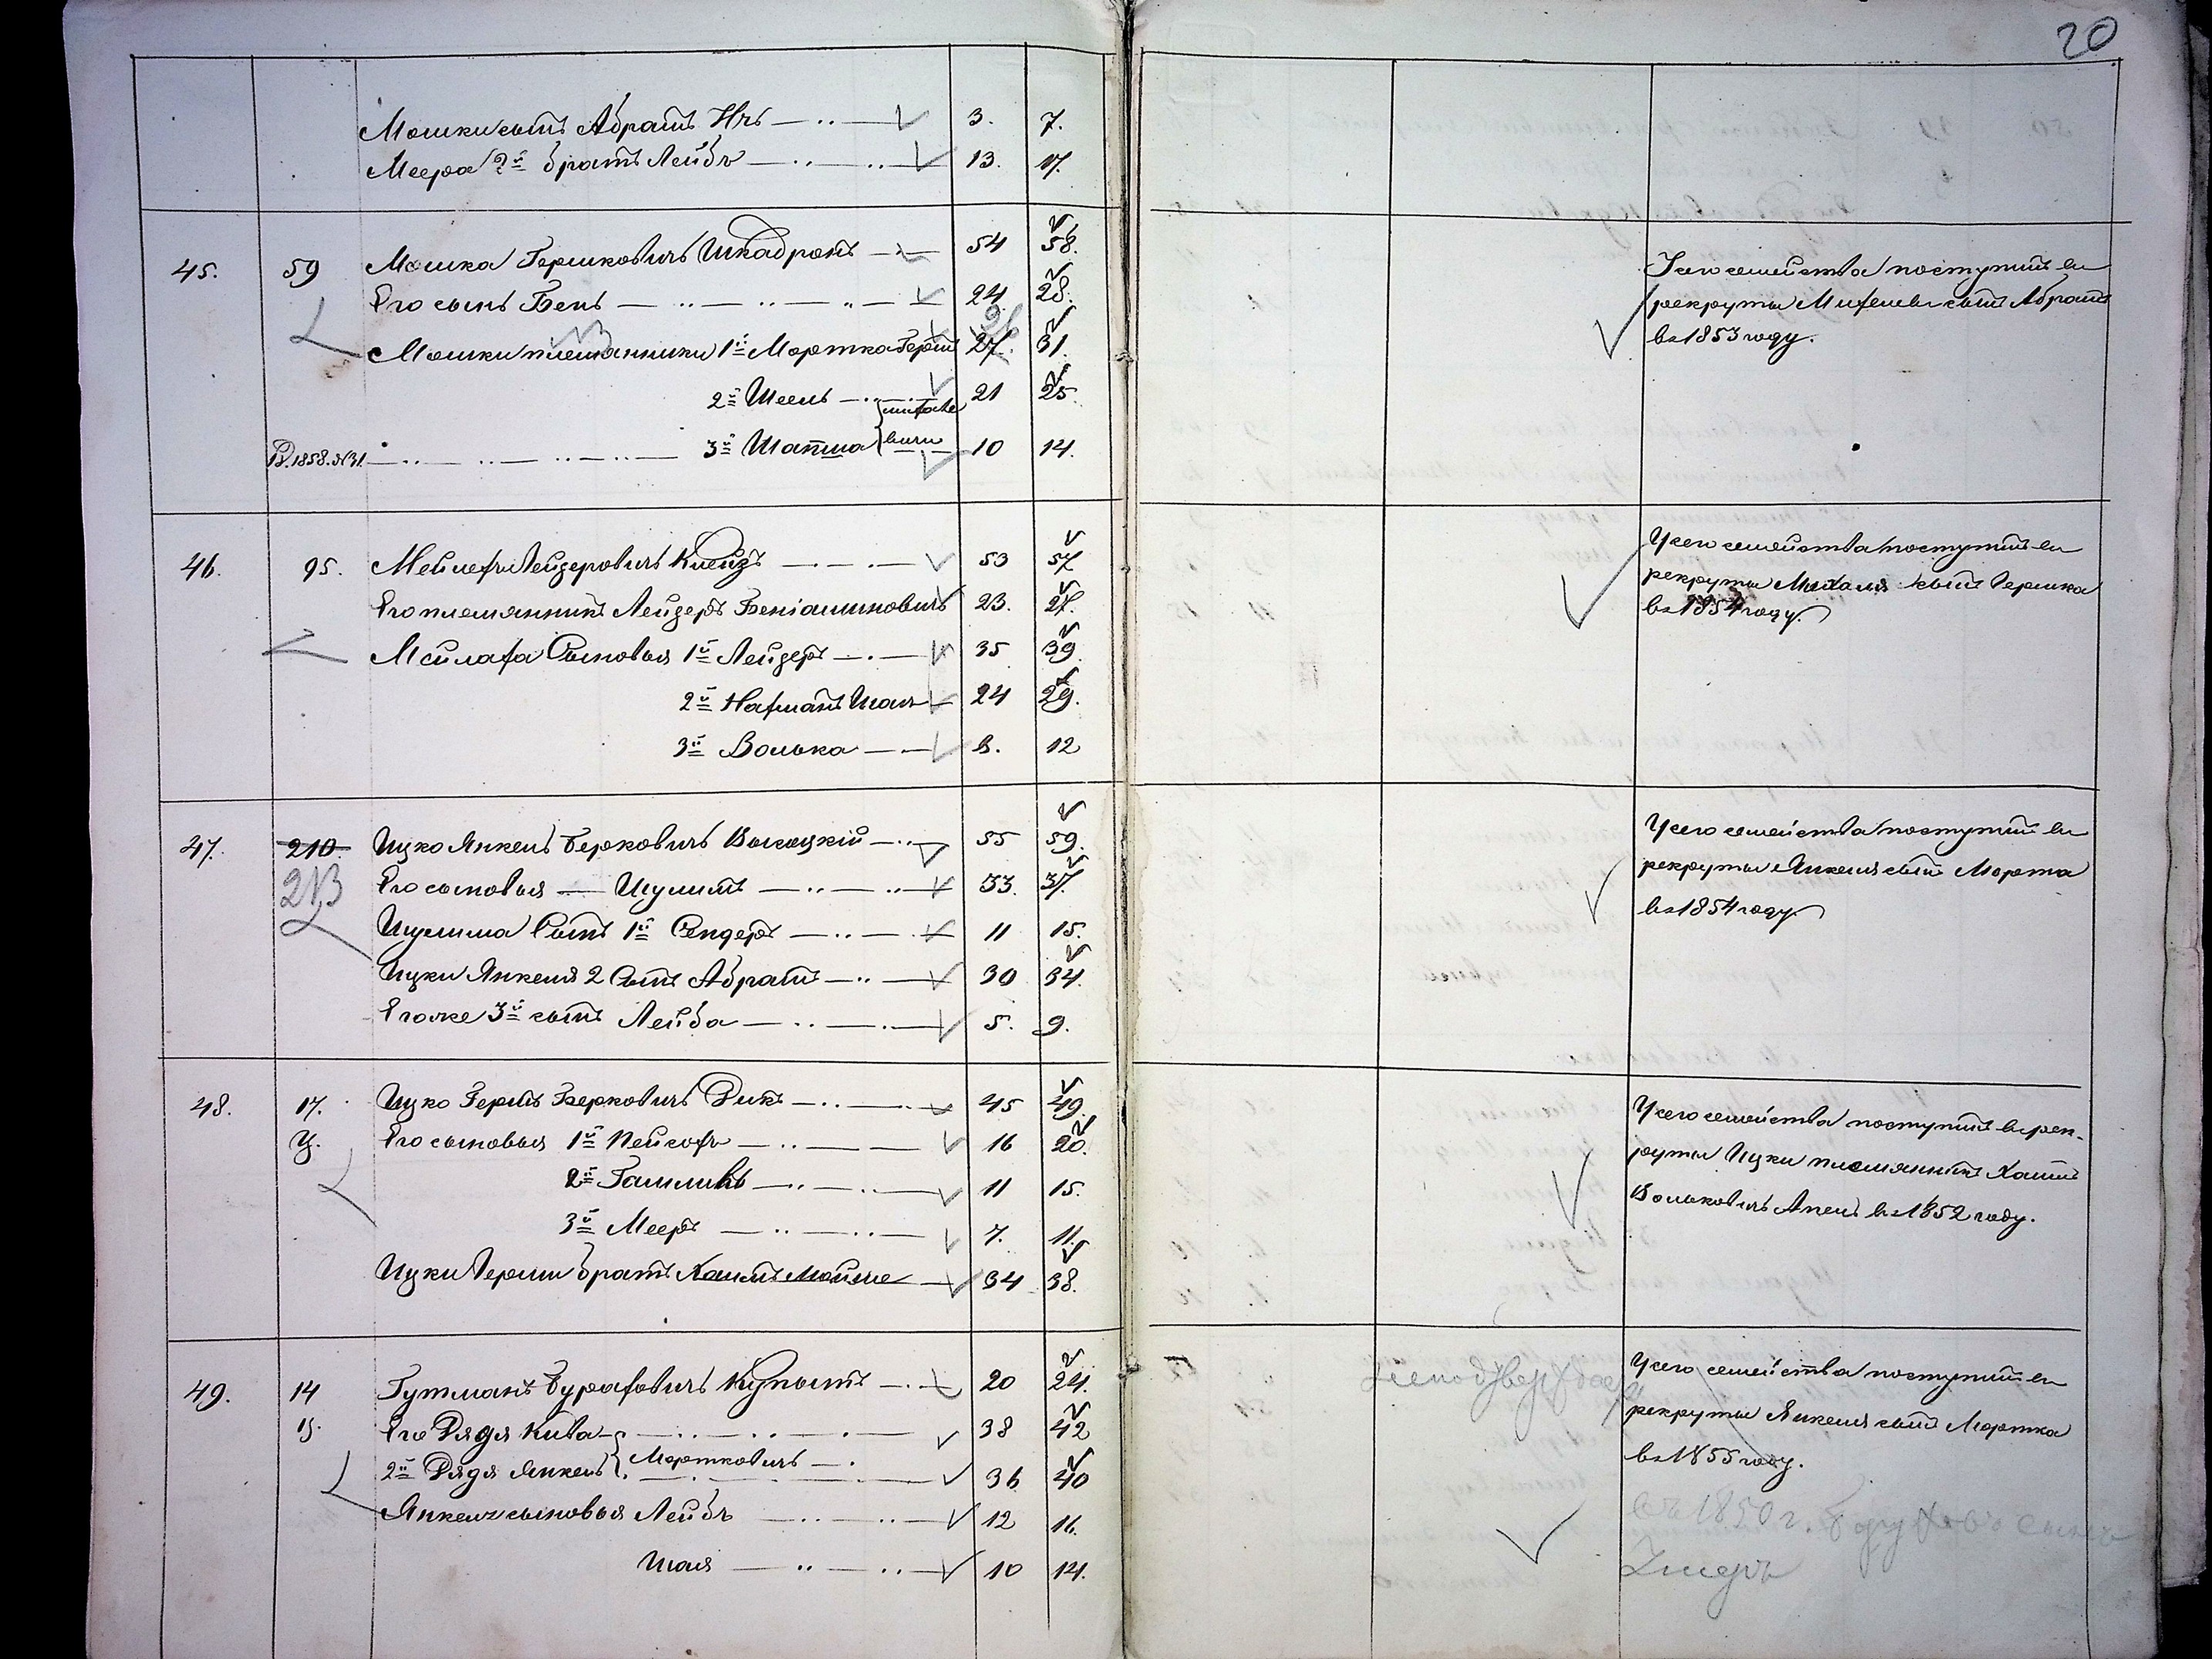 20
Мошки сынъ Абрамъ Ицъ 3. 7.
Меера 2й братъ Лейбъ 13. 17.
45. 59 Мошка Гершковичъ Шкадронъ 54 58.
Его сынъ Бень 24 28.
Мошки племянники 1й Мортка Герш 27. 31.
26
2й Шеель 21 25.
3й Шапша 10 14.
Р. 1858. №31.
Изъ сего семейства поступилъ въ
рекруты Михеля сынъ Абрамъ
въ 1853 году.
46. 95. Мейлехъ Лейзеровичъ Клейзъ 53 57
Его племянникъ Лейзеръ Беніаминовичъ 23. 27.
Мейлаха Сыновья 1й Лейзеръ 35 39
2й Нахманъ Шая 24 29.
3й Волька 8. 12
Изъ сего семейства поступилъ въ
рекруты Михаля сынъ Гершка
въ 1854 году.
47. 210. Ицко Янкель Берковичъ Высоцкій 55 59.
213 Его сыновья Шулимъ 33. 37.
Шулима Сынъ 1й Сендеръ 11 15.
Ицки Янкеля 2 Сынъ Абрамъ 30 34.
Его же 3й сынъ Лейба 5. 9.
Изъ сего семейства поступилъ въ
рекруты Янкеля сынъ Морта
въ 1854 году.
48. 17. Ицко Гершъ Берковичъ Дикъ 45 49.
Его сыновья 1й Пейсохъ 16 20.
2й Гашликъ 11 15.
3й Мееръ 7. 11.
Ицки Герши братъ Хаимъ Мойше 34 38.
Изъ сего семейства поступилъ въ рек-
руты Ицки племянникъ Хаимъ
Вольковичъ Апель въ 1852 году.
49. 14 Гутманъ Бураховичъ Купытъ 20 24.
Его Дядя Кива 38 42
2й Дядя Янкель Мортковичъ 36 40
Янкеля сыновья Лейбъ 12 16.
Шая 10 14.
Изъ сего семейства поступилъ въ
рекруты Янкеля сынъ Мортка
въ 1855 году.
въ 1850 г. Бурахов сынъ